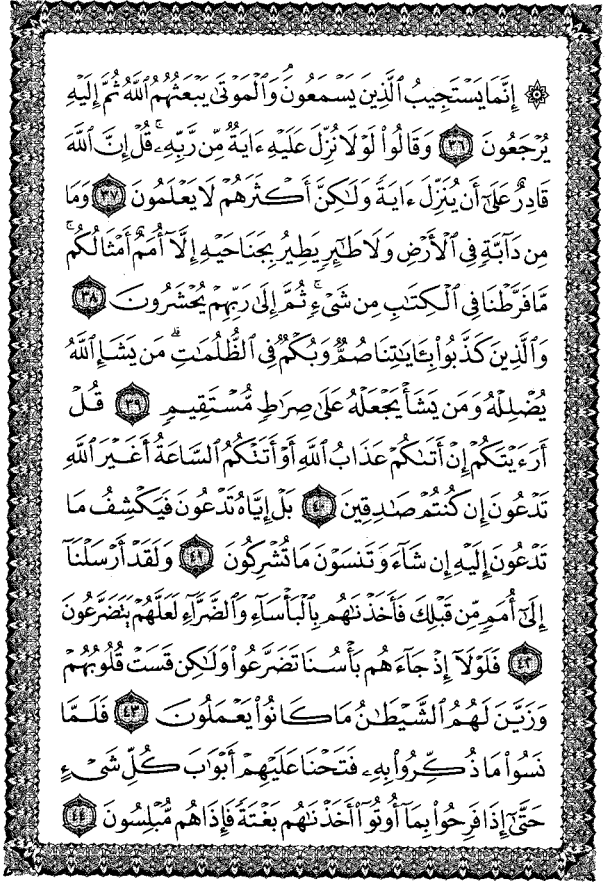 ۞ إِنَّمَا يَسْتَجِيبُ ٱلَّذِينَ يَسْمَعُونَۘ وَٱلْمَوْتَىٰ يَبْعَثُهُمُ ٱللَّهُ ثُمَّ إِلَيْهِ
يُرْجَعُونَ ٣٦ وَقَالُوا۟ لَوْلَا نُزِّلَ عَلَيْهِ ءَايَةٌ مِّن رَّبِّهِۦۚ قُلْ إِنَّ ٱللَّهَ
قَادِرٌ عَلَىٰٓ أَن يُنَزِّلَ ءَايَةً وَلَـٰكِنَّ أَكْثَرَهُمْ لَا يَعْلَمُونَ ٣٧ وَمَا
مِن دَآبَّةٍ فِى ٱلْأَرْضِ وَلَا طَـٰٓئِرٍ يَطِيرُ بِجَنَاحَيْهِ إِلَّآ أُمَمٌ أَمْثَالُكُمۚ
مَّا فَرَّطْنَا فِى ٱلْكِتَـٰبِ مِن شَىْءٍۚ ثُمَّ إِلَىٰ رَبِّهِمْ يُحْشَرُونَ ٣٨
وَٱلَّذِينَ كَذَّبُوا۟ بِـَٔايَـٰتِنَا صُمٌّ وَبُكْمٌ فِى ٱلظُّلُمَـٰتِۗ مَن يَشَإِ ٱللَّهُ
يُضْلِلْهُ وَمَن يَشَأْ يَجْعَلْهُ عَلَىٰ صِرَٰطٍ مُّسْتَقِيمٍ ٣٩ قُلْ
أَرَءَيْتَكُمْ إِنْ أَتَىٰكُمْ عَذَابُ ٱللَّهِ أَوْ أَتَتْكُمُ ٱلسَّاعَةُ أَغَيْرَ ٱللَّهِ
تَدْعُونَ إِن كُنتُمْ صَـٰدِقِينَ ٤٠ بَلْ إِيَّاهُ تَدْعُونَ فَيَكْشِفُ مَا
تَدْعُونَ إِلَيْهِ إِن شَآءَ وَتَنسَوْنَ مَا تُشْرِكُونَ ٤١ وَلَقَدْ أَرْسَلْنَآ
إِلَىٰٓ أُمَمٍ مِّن قَبْلِكَ فَأَخَذْنَـٰهُم بِٱلْبَأْسَآءِ وَٱلضَّرَّآءِ لَعَلَّهُمْ يَتَضَرَّعُونَ
٤٢ فَلَوْلَآ إِذْ جَآءَهُم بَأْسُنَا تَضَرَّعُوا۟ وَلَـٰكِن قَسَتْ قُلُوبُهُمْ
وَزَيَّنَ لَهُمُ ٱلشَّيْطَـٰنُ مَا كَانُوا۟ يَعْمَلُونَ ٤٣ فَلَمَّا
نَسُوا۟ مَا ذُكِّرُوا۟ بِهِۦ فَتَحْنَا عَلَيْهِمْ أَبْوَٰبَ كُلِّ شَىْءٍ
حَتَّىٰٓ إِذَا فَرِحُوا۟ بِمَآ أُوتُوٓا۟ أَخَذْنَـٰهُم بَغْتَةً فَإِذَا هُم مُّبْلِسُونَ ٤٤